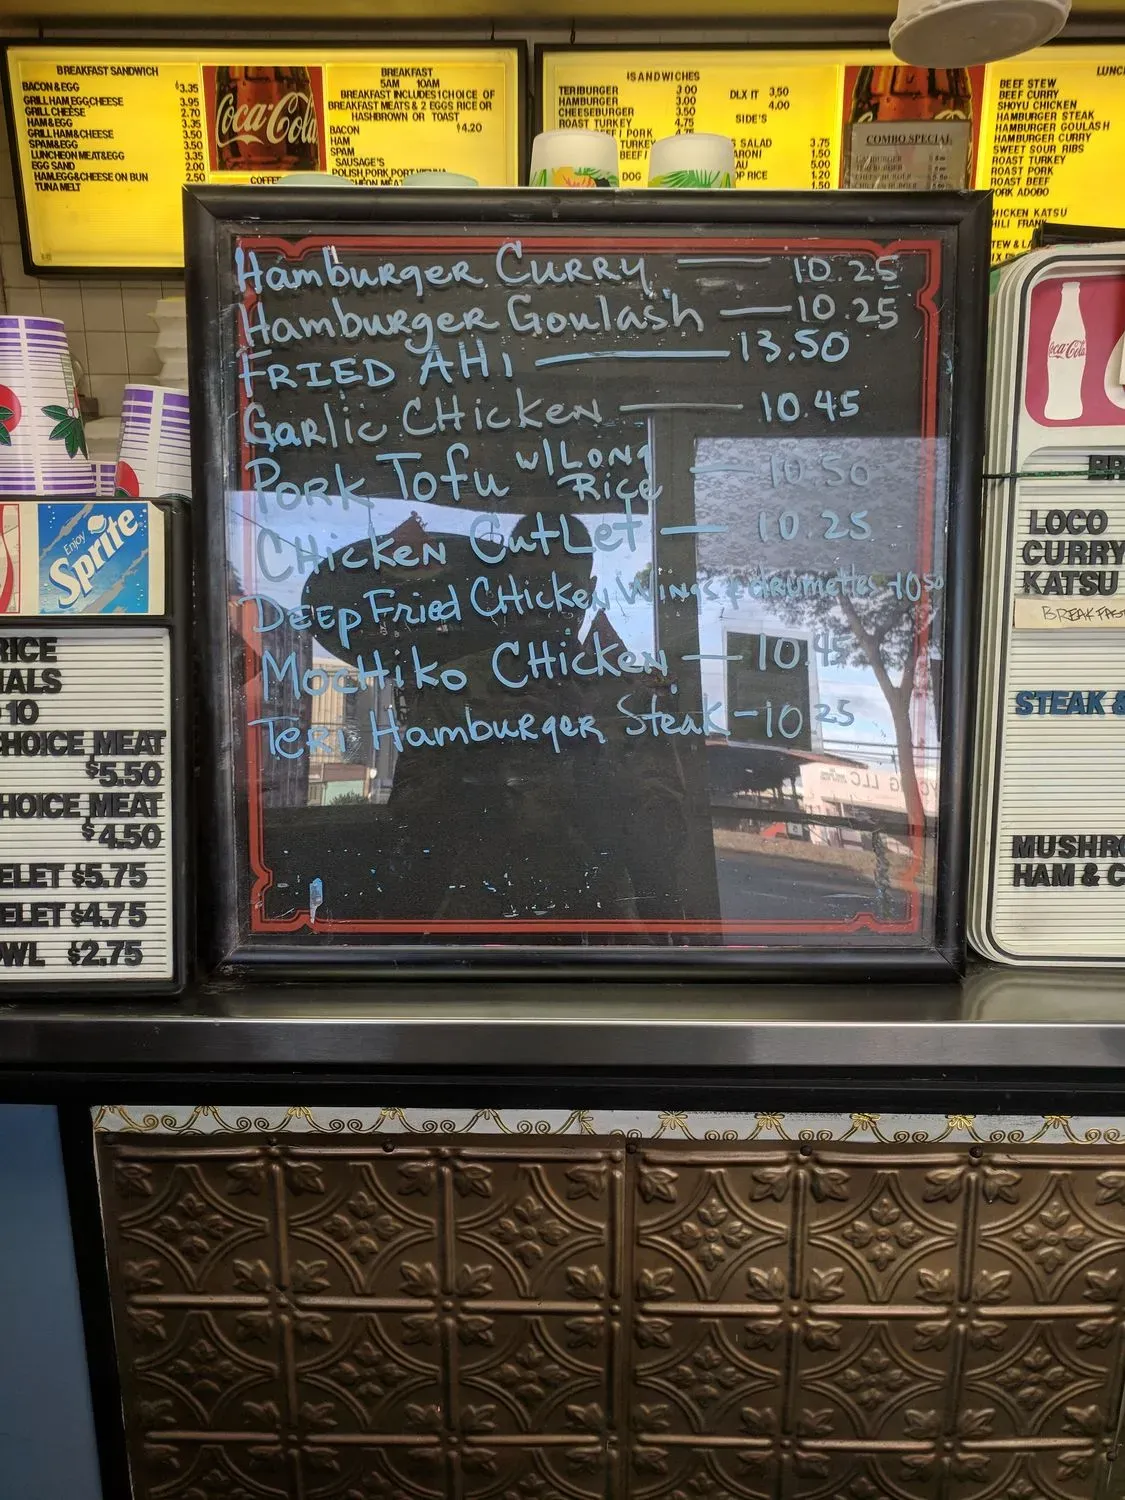 BREAKFAST SANDWICH
BACON & EGG $3.35
GRILL HAM,EGG,CHEESE 3.95
GRILL CHEESE 2.70
HAM & EGG 3.35
GRILL HAM & CHEESE 3.50
SPAM & EGG 3.50
LUNCHEON MEAT & EGG 3.35
EGG SAND 2.00
HAM,EGG & CHEESE ON BUN 2.50
TUNA MELT
Coca-Cola
BREAKFAST
5AM 10AM
BREAKFAST INCLUDES 1 CHOICE OF
BREAKFAST MEATS & 2 EGGS RICE OR
HASHBROWN OR TOAST
BACON $4.20
HAM
SPAM
SAUSAGE'S
POLISH, PORK, PORT
COFFEE
SANDWICHES
TERIBURGER 3.00
HAMBURGER 3.00
CHEESEBURGER 3.50
ROAST TURKEY 4.75
DLX IT 3.50
4.00
SIDE'S
SALAD 3.75
1.50
5.00
RICE 1.20
1.50
DOG
COMBO SPECIAL
LUNC
BEEF STEW
BEEF CURRY
SHOYU CHICKEN
HAMBURGER STEAK
HAMBURGER GOULASH
HAMBURGER CURRY
SWEET SOUR RIBS
ROAST TURKEY
ROAST PORK
ROAST BEEF
PORK ADOBO
HICKEN KATSU
HILI FRANK
TEW & LA
Hamburger Curry — 10.25
Hamburger Goulash — 10.25
FRIED AHi — 13.50
Garlic CHicken — 10.45
Pork Tofu w/Long Rice — 10.50
CHicken CutLet — 10.25
DEEp Fried CHicken Wings & drumettes -10.50
MocHiko CHicken — 10.45
Teri Hamburger Steak - 10.25
Enjoy
Sprite
RICE
IALS
10
CHOICE MEAT
$5.50
CHOICE MEAT
$4.50
ELET $5.75
ELET $4.75
OWL $2.75
Coca-Cola
BR
LOCO
CURRY
KATSU
BREAKFAST
STEAK &
MUSHRO
HAM & C